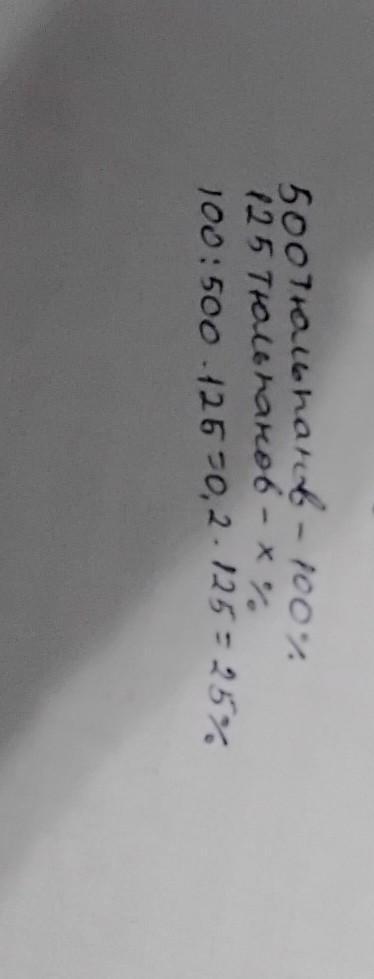 500 тюльпанов - 100%
125 тюльпанов - x%
100:500·125=0,2·125=25%